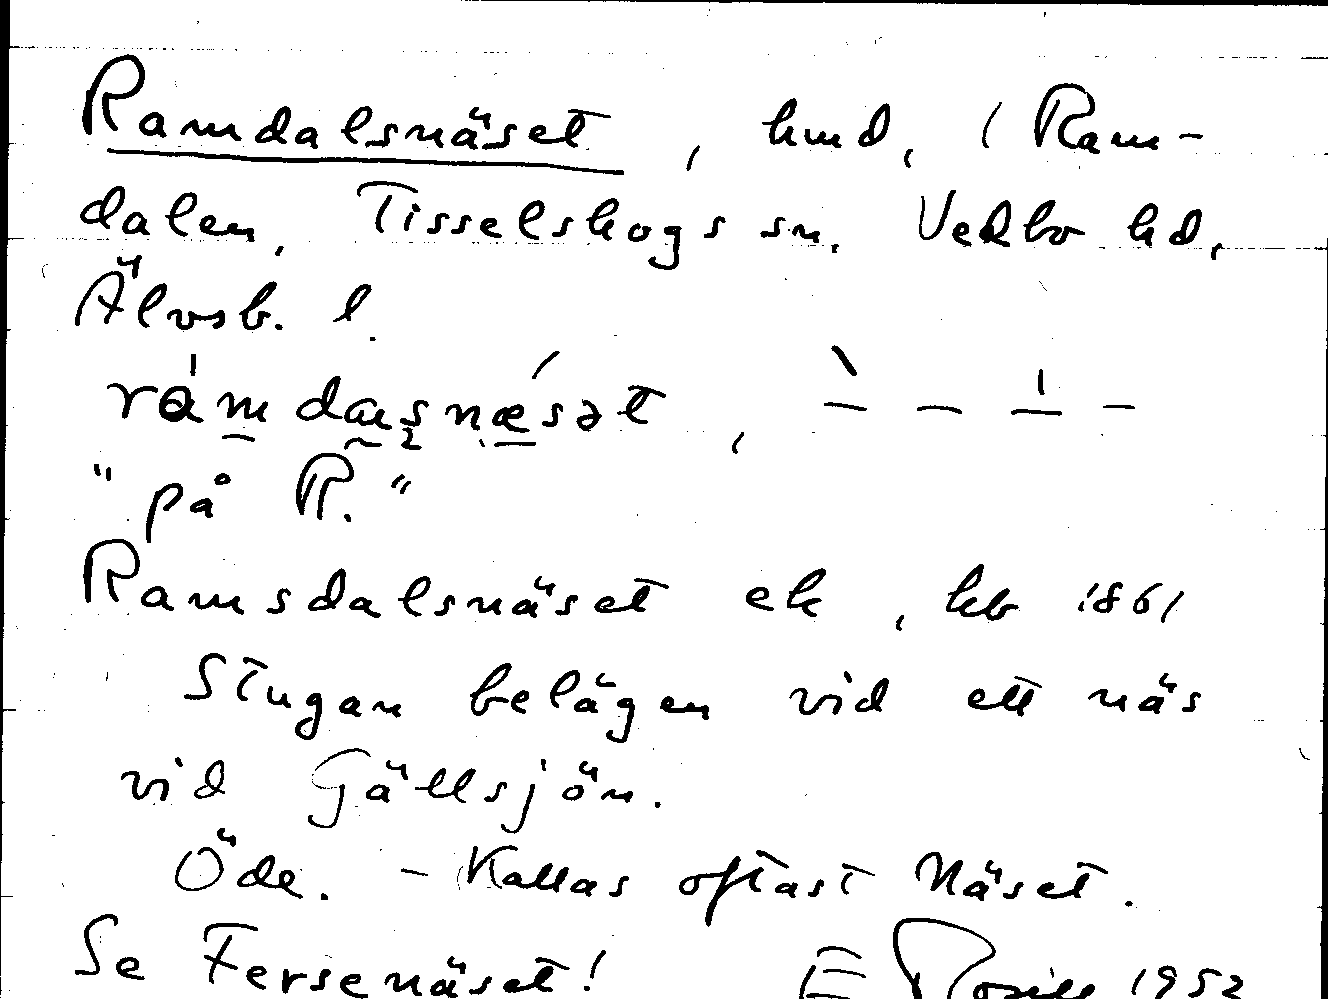 Ramdalsnäset, hmd, (Ram-
dalen, Tisselskogs sn, Vedbo hd,
Älvsb. l.
"på R."
Ramsdalsnäset ek, kb 1861
Stugan belägen vid ett näs
vid Gällsjön.
Öde. - Kallas oftast Näset.
Se Fersenäset! E 1952